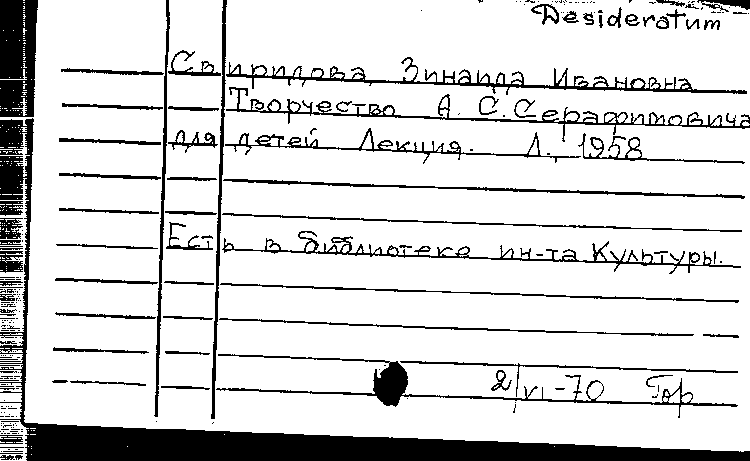 Desideratum
Свиридова Зинаида Ивановна
Творчество А. С. Серафимовича
для детей Лекция. Л., 1958
Есть в библиотеке ин-та Культуры.
2/VI-70 Гор